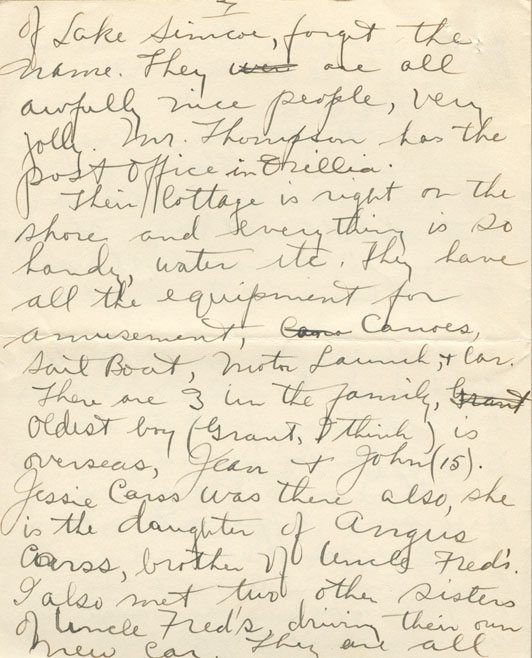 7
of Lake Simcoe, forget the
name. They were are all
awfully nice people, very
jolly. Mr. Thompson has the
post office in Orillia.
Their Cottage is right on the
shore and everything is so
handy, water etc. They have
all the equipment for
amusement, Cano Canoes,
Sail Boat, Motor Launch, + Car.
There are 3 in the family, Grant
Oldest boy (Grant, I think) is
overseas, Jean + John (15).
Jessie Carss was there also, she
is the daughter of Angus
Carss, brother of Uncle Fred's.
I also met two other sisters
of Uncle Fred's, driving their own
new car. They are all